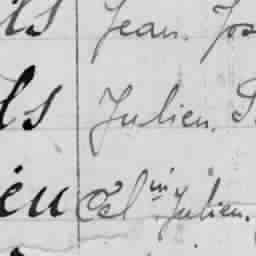 ils Jean. Jos
ls Julien. S
ieu Cél in Julien.